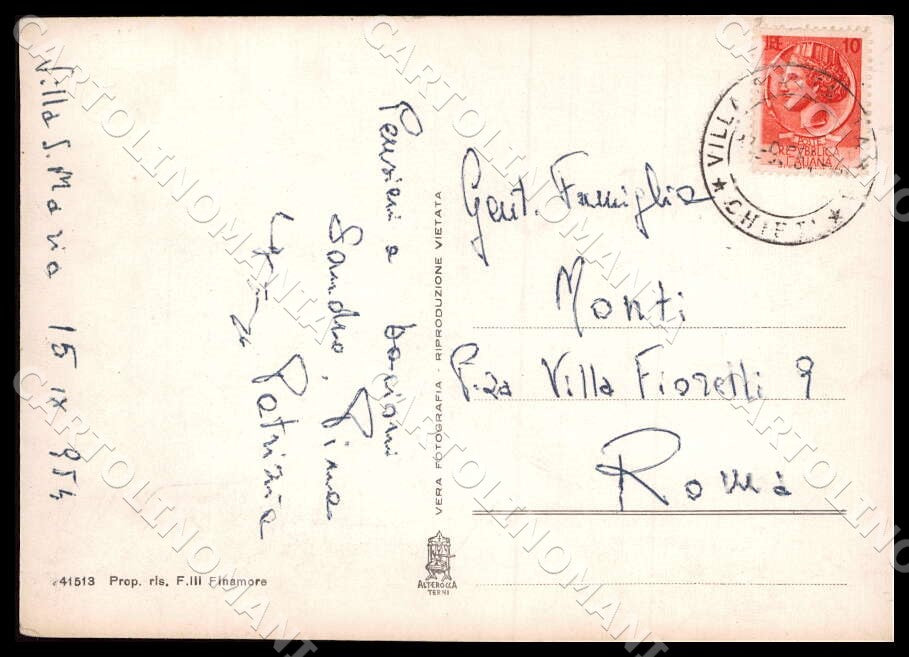 Villa S. Maria 15 IX 954
Pensieri e bacioni
Sandro, Pina
Patrizia
41513 Prop. ris. F.lli Finamore
VERA FOTOGRAFIA - RIPRODUZIONE VIETATA
ALTEROCCA
TERNI
LIRE 10
POSTE
REPVBBLICA
ITALIANA
★ CHIETI ★
VILLA
Gent. Famiglia
Monti
P.za Villa Fiorelli 9
Roma
CARTOLINOMANIA